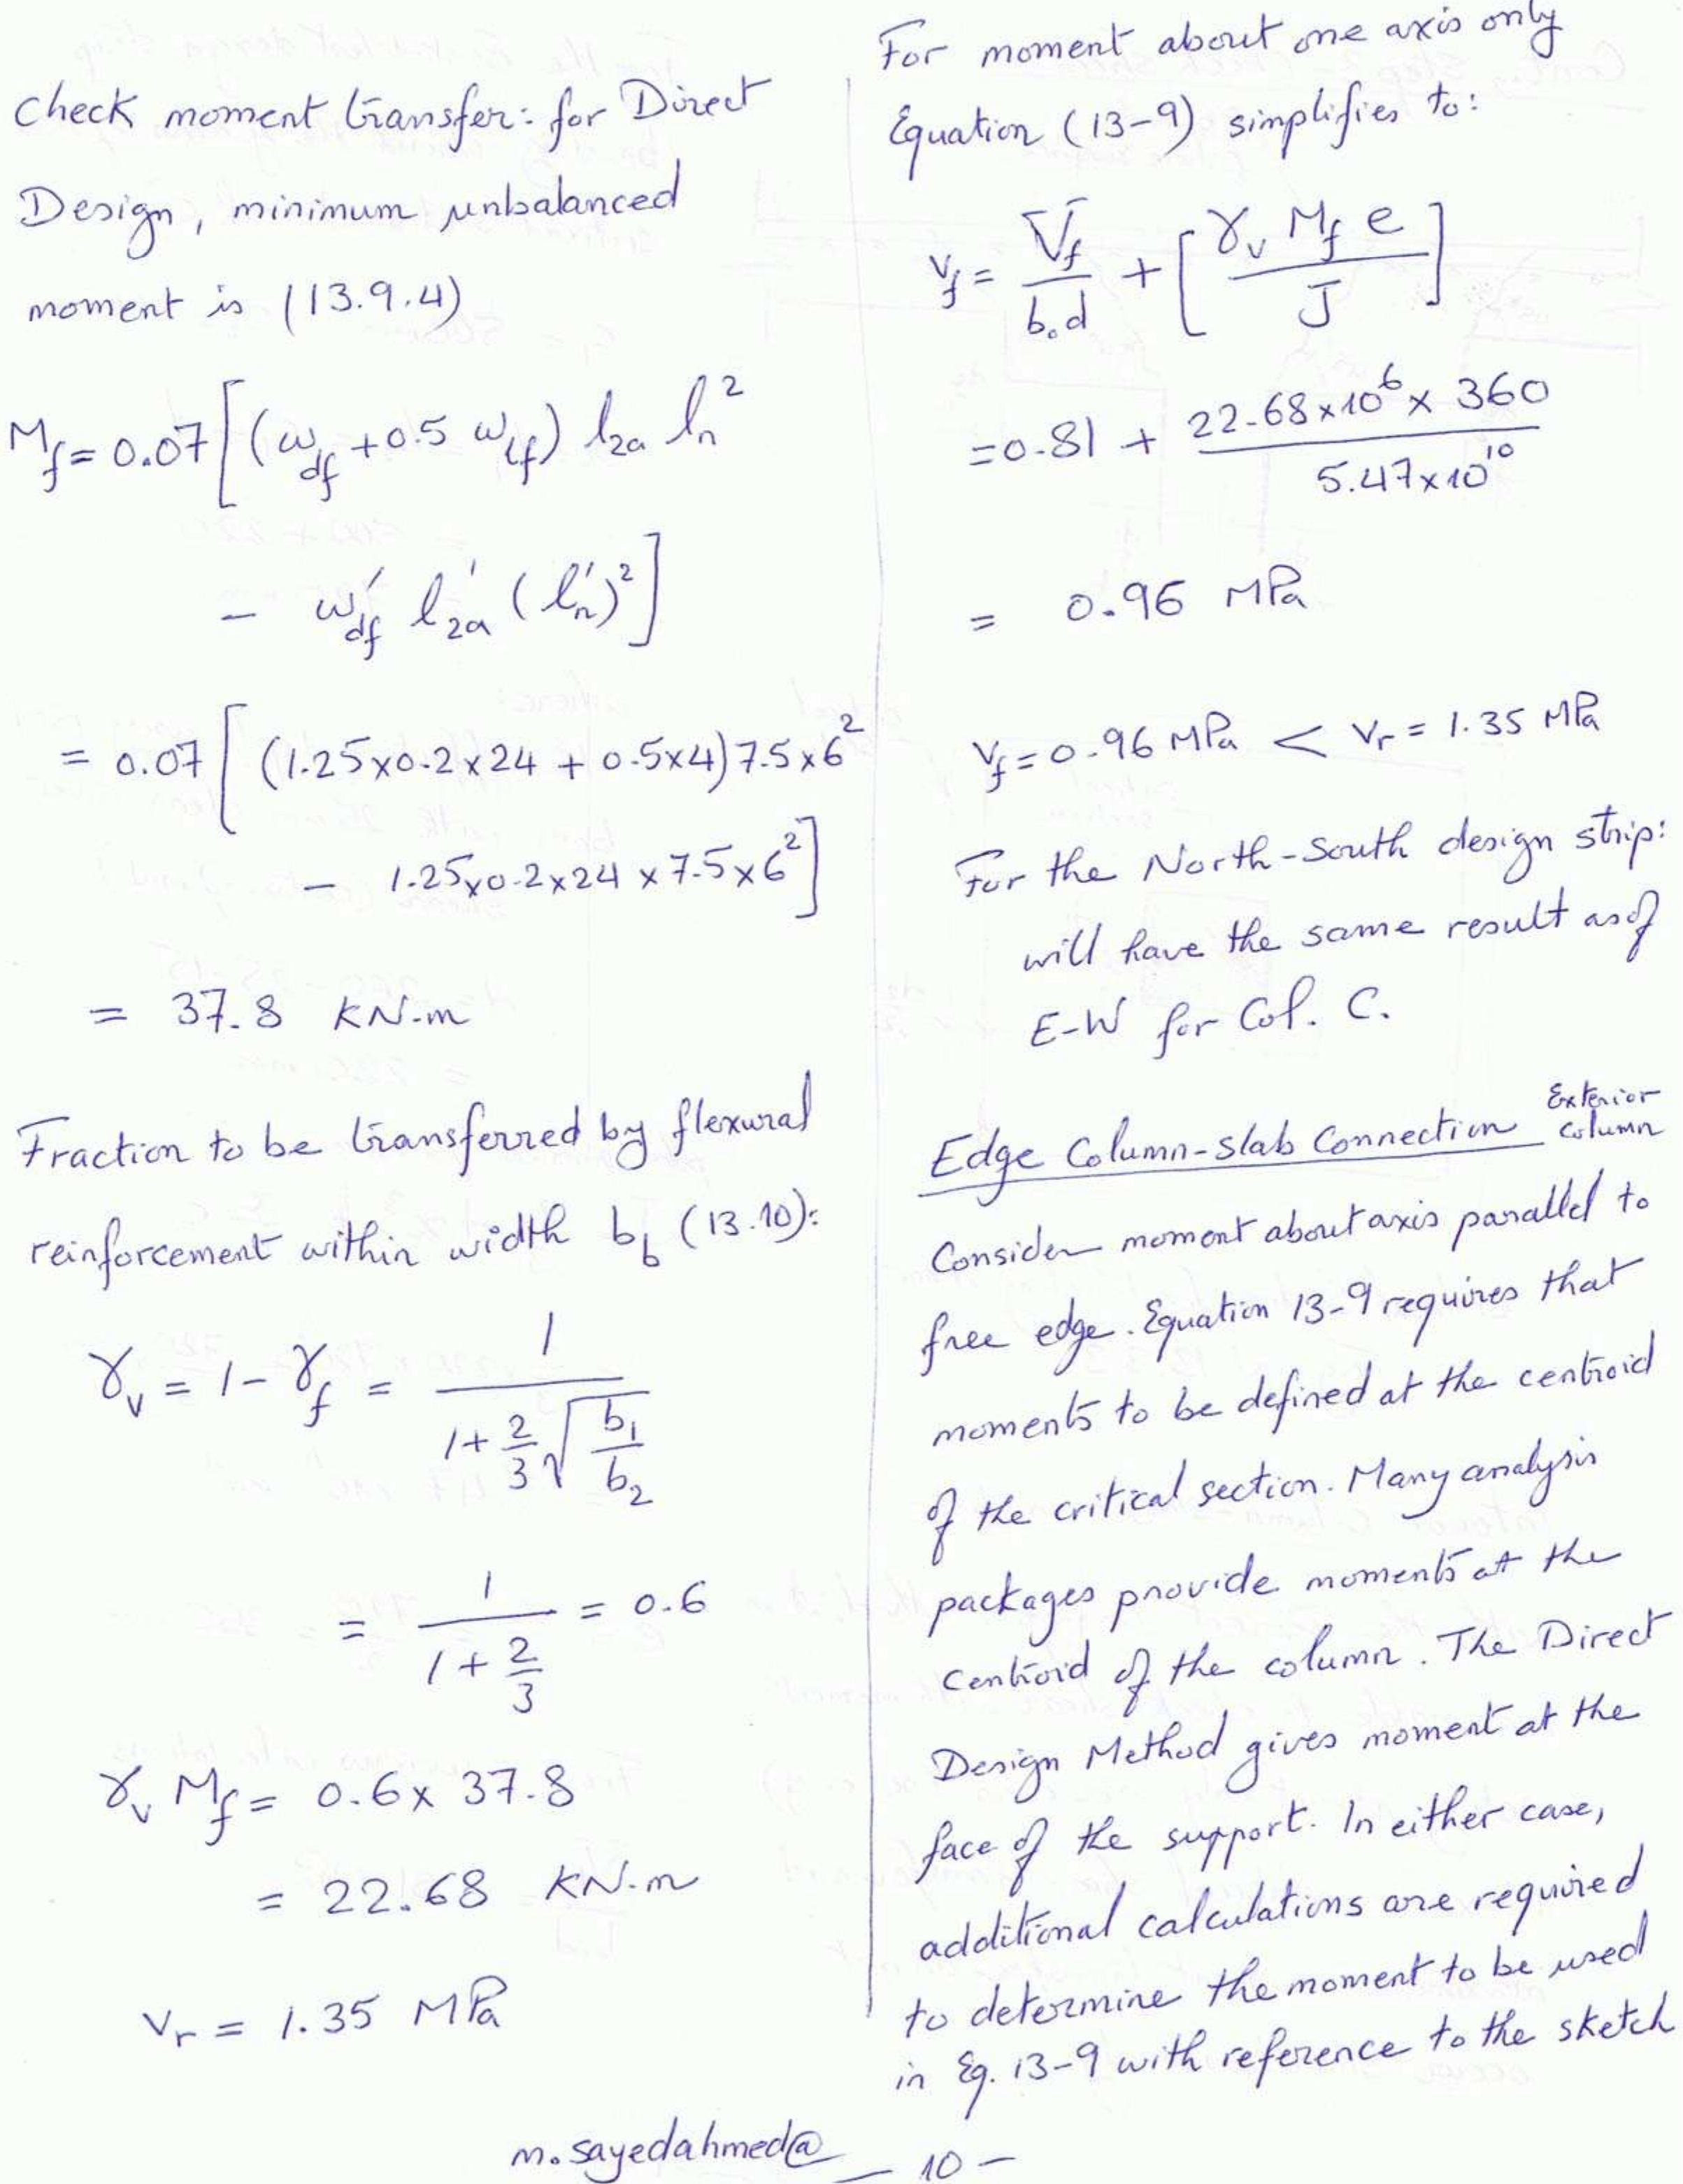 Check moment transfer: for Direct
Design, minimum unbalanced
moment is (13.9.4)
M_f = 0.07 [ (ω_df + 0.5 ω_lf) l_2a l_n^2
- ω'_df l'_2a (l'_n)^2 ]
= 0.07 [ (1.25x0.2x24 + 0.5x4) 7.5x6^2
- 1.25x0.2x24 x 7.5x6^2 ]
= 37.8 KN.m
Fraction to be transferred by flexural
reinforcement within width b_b (13.10):
γ_v = 1 - γ_f = 1 / (1 + 2/3 √(b_1/b_2))
= 1 / (1 + 2/3) = 0.6
γ_v M_f = 0.6 x 37.8
= 22.68 KN.m
V_r = 1.35 MPa
For moment about one axis only
Equation (13-9) simplifies to:
V_f = V_f / b_o d + [ γ_v M_f e / J ]
= 0.81 + 22.68x10^6 x 360 / 5.47x10^10
= 0.96 MPa
V_f = 0.96 MPa < V_r = 1.35 MPa
For the North-South design strip:
will have the same result as of
E-W for Col. C.
Edge Column-slab Connection Exterior column
Consider moment about axis parallel to
free edge. Equation 13-9 requires that
moments to be defined at the centroid
of the critical section. Many analysis
packages provide moments at the
centroid of the column. The Direct
Design Method gives moment at the
face of the support. In either case,
additional calculations are required
to determine the moment to be used
in Eq. 13-9 with reference to the sketch
m.sayedahmed@
- 10 -